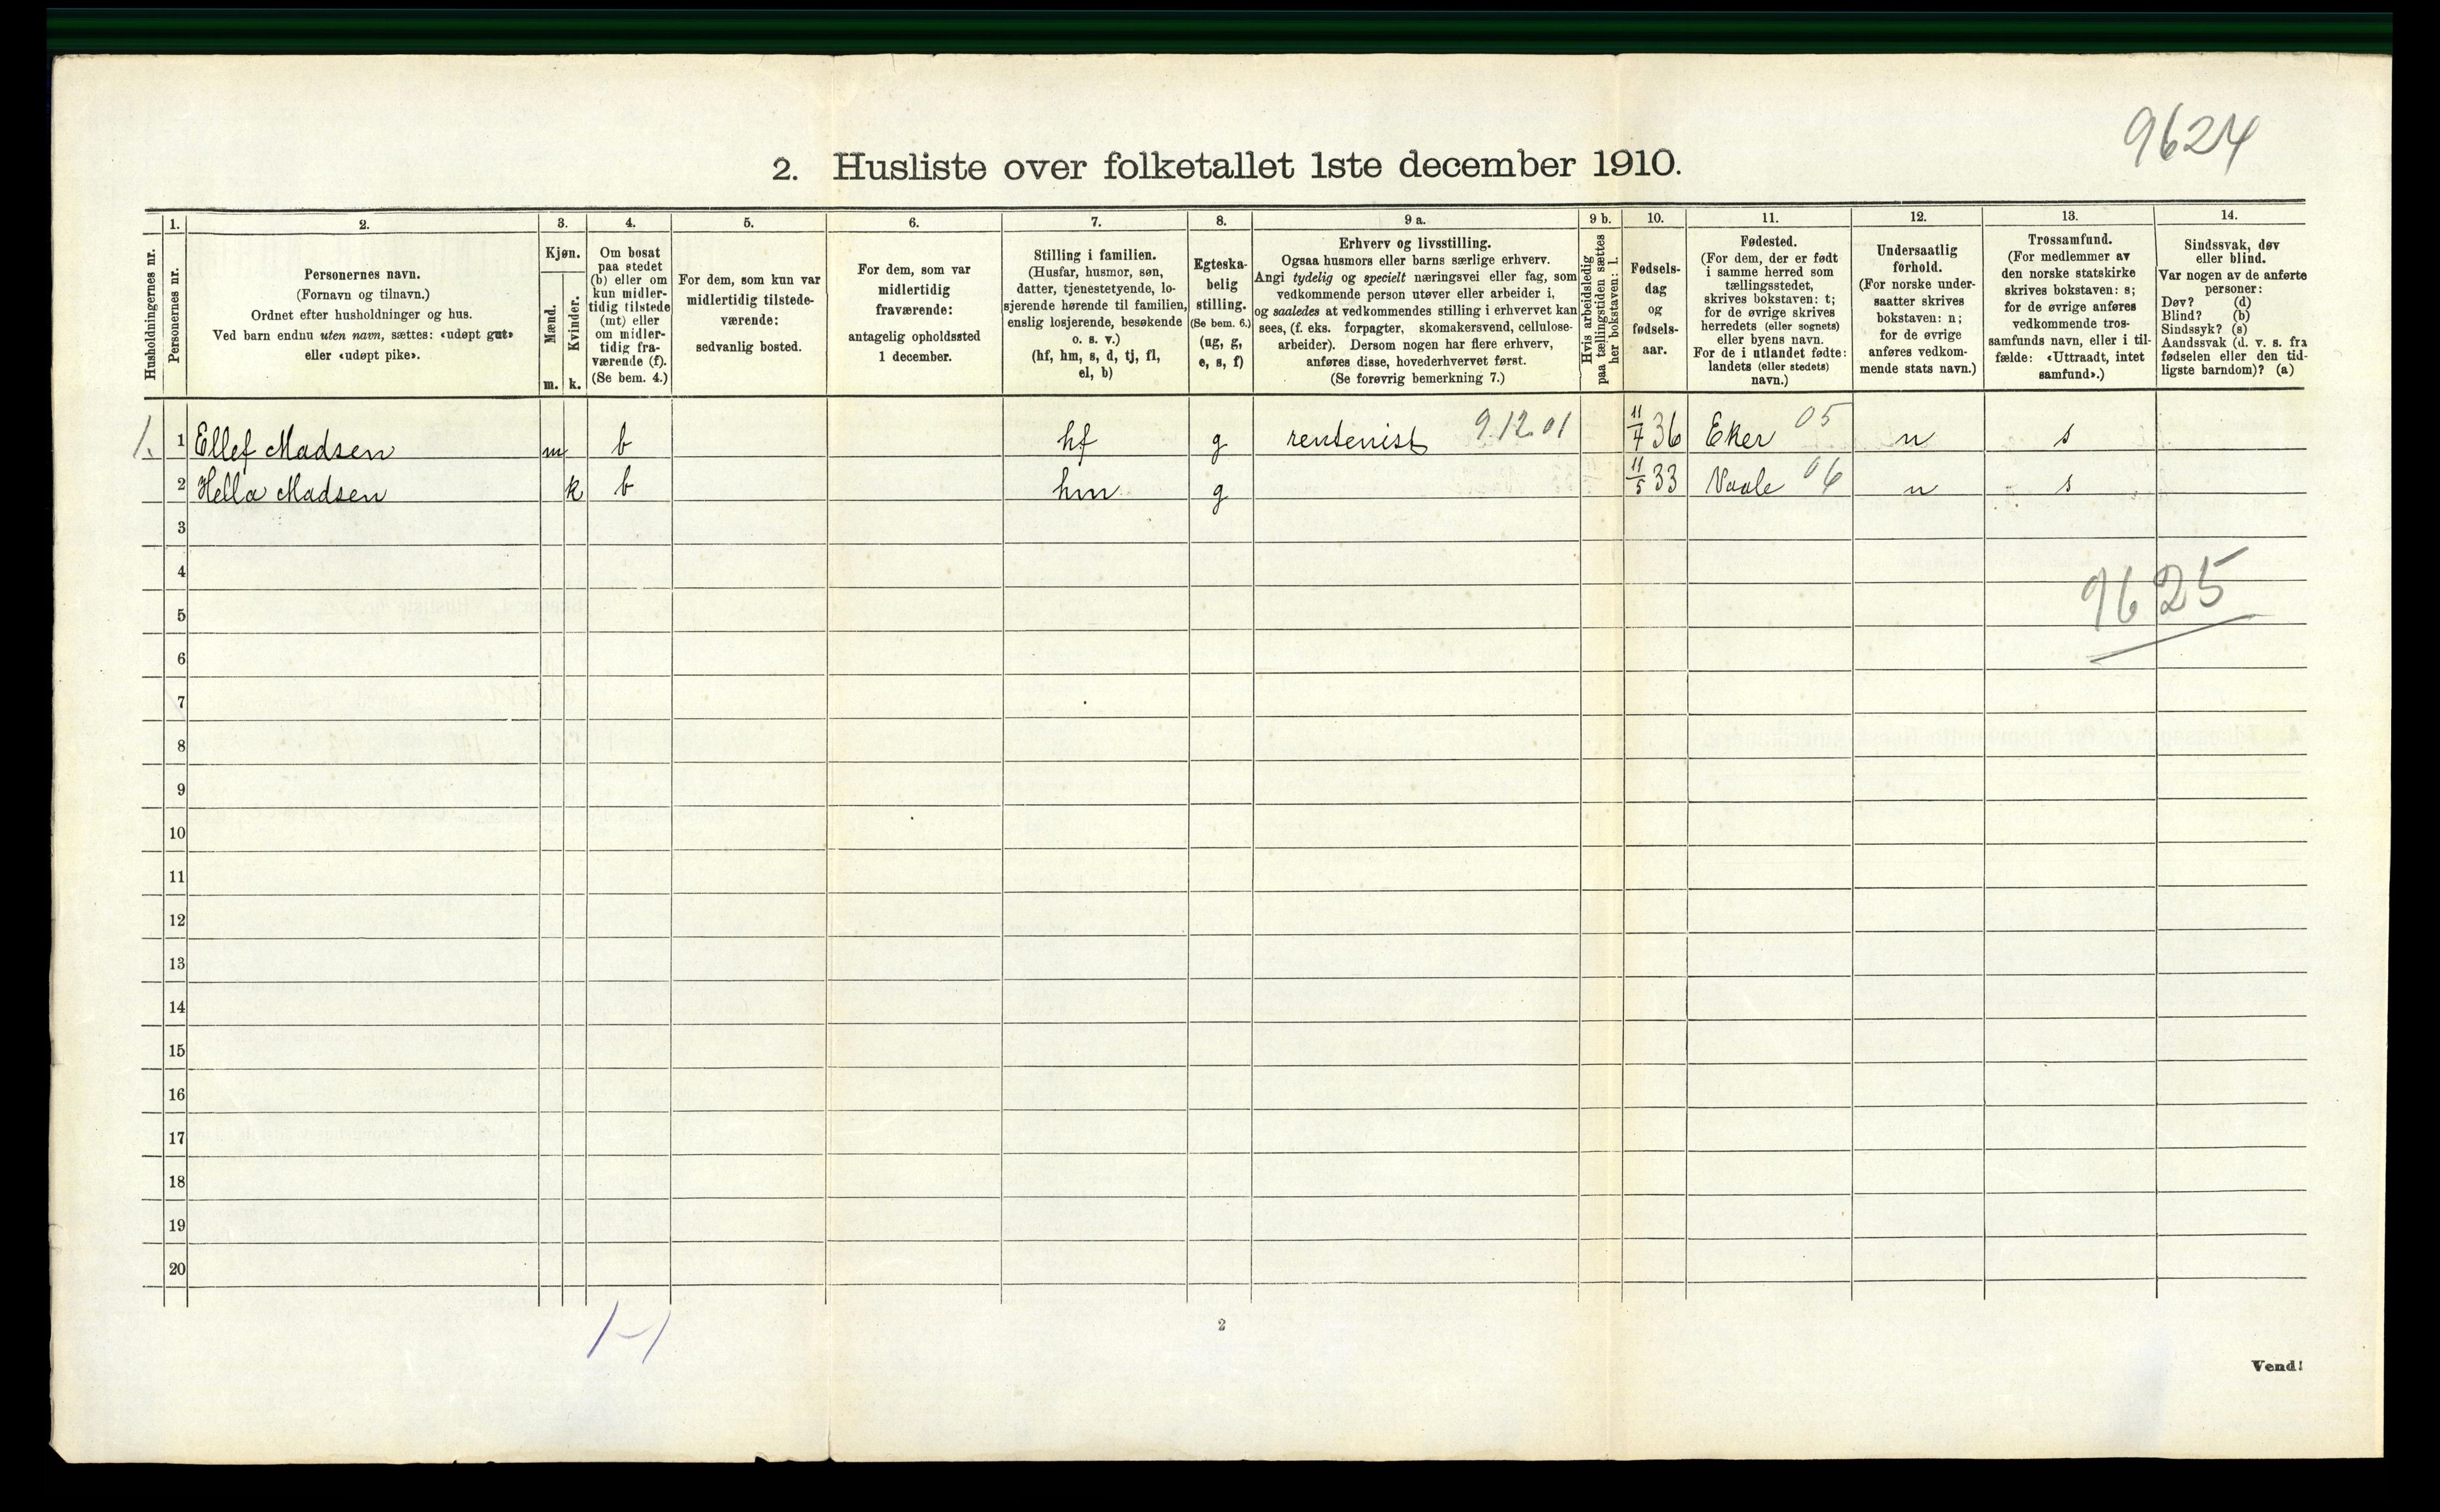 9624
2. Husliste over folketallet 1ste december 1910.
Husholdningernes nr.
1.
Personernes nr.
2.
Personernes navn.
(Fornavn og tilnavn.)
Ordnet efter husholdninger og hus.
Ved barn endnu uten navn, sættes: «udøpt gut»
eller «udøpt pike».
3.
Kjøn.
Mænd.
Kvinder.
m. k.
4.
Om bosat
paa stedet
(b) eller om
kun midler-
tidig tilstede
(mt) eller
om midler-
tidig fra-
værende (f).
(Se bem. 4.)
5.
For dem, som kun var
midlertidig tilstede-
værende:
sedvanlig bosted.
6.
For dem, som var
midlertidig
fraværende:
antagelig opholdssted
1 december.
7.
Stilling i familien.
(Husfar, husmor, søn,
datter, tjenestetyende, lo-
sjerende hørende til familien,
enslig losjerende, besøkende
o. s. v.)
(hf, hm, s, d, tj, fl,
el, b)
8.
Egteska-
belig
stilling.
(Se bem. 6.)
(ug, g,
e, s, f)
9 a.
Erhverv og livsstilling.
Ogsaa husmors eller barns særlige erhverv.
Angi tydelig og specielt næringsvei eller fag, som
vedkommende person utøver eller arbeider i,
og saaledes at vedkommendes stilling i erhvervet kan
sees, (f. eks. forpagter, skomakersvend, cellulose-
arbeider). Dersom nogen har flere erhverv,
anføres disse, hovederhvervet først.
(Se forøvrig bemerkning 7.)
9 b.
Hvis arbeidsledig
paa tællingstiden sættes
her bokstaven: l.
10.
Fødsels-
dag
og
fødsels-
aar.
11.
Fødested.
(For dem, der er født
i samme herred som
tællingsstedet,
skrives bokstaven: t;
for de øvrige skrives
herredets (eller sognets)
eller byens navn.
For de i utlandet fødte:
landets (eller stedets)
navn.)
12.
Undersaatlig
forhold.
(For norske under-
saatter skrives
bokstaven: n;
for de øvrige
anføres vedkom-
mende stats navn.)
13.
Trossamfund.
(For medlemmer av
den norske statskirke
skrives bokstaven: s;
for de øvrige anføres
vedkommende tros-
samfunds navn, eller i til-
fælde: «Uttraadt, intet
samfund».)
14.
Sindssvak, døv
eller blind.
Var nogen av de anførte
personer:
Døv? (d)
Blind? (b)
Sindssyk? (s)
Aandssvak (d. v. s. fra
fødselen eller den tid-
ligste barndom)? (a)
1. 1 Ellef Madsen m b hf g rentenist 9.12.01 11/7 36 Eker 05 n s
2 Hella Madsen k b hm g 11/5 33 Vaale 06 n s
3
4
9625
5
6
7
8
9
10
11
12
13
14
15
16
17
18
19
20
1-1
2
Vend!